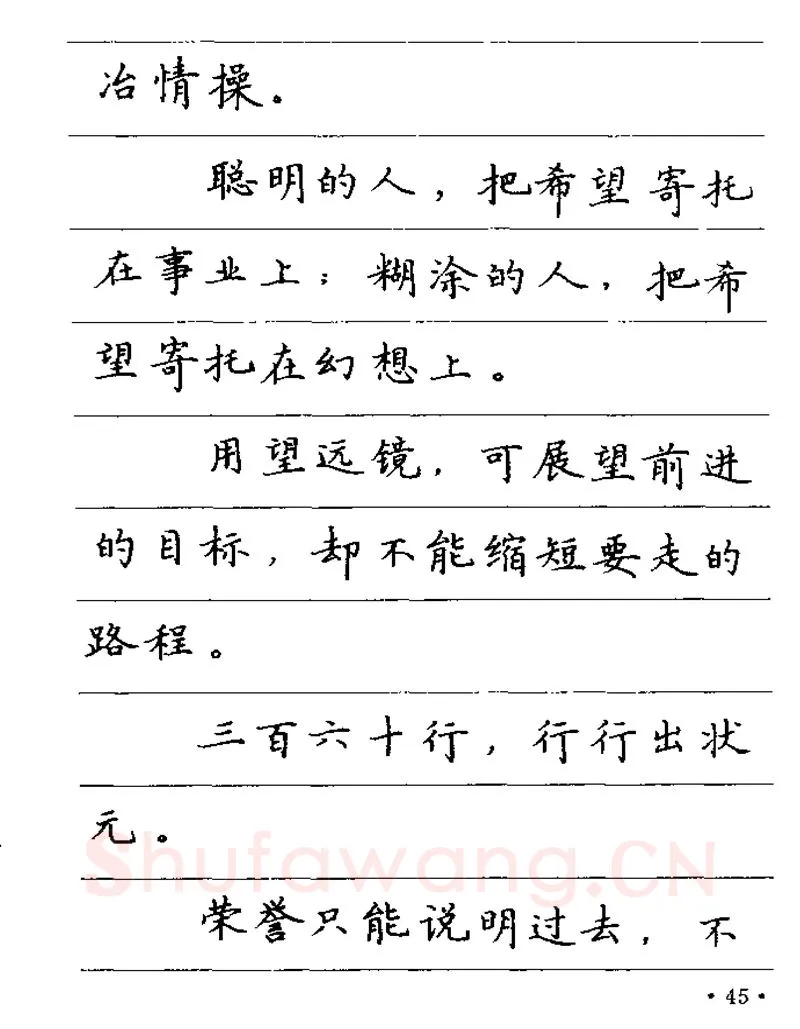 冶情操。
聪明的人，把希望寄托
在事业上；糊涂的人，把希
望寄托在幻想上。
用望远镜，可展望前进
的目标，却不能缩短要走的
路程。
三百六十行，行行出状
元。
Shufawang.CN
荣誉只能说明过去，不
·45·